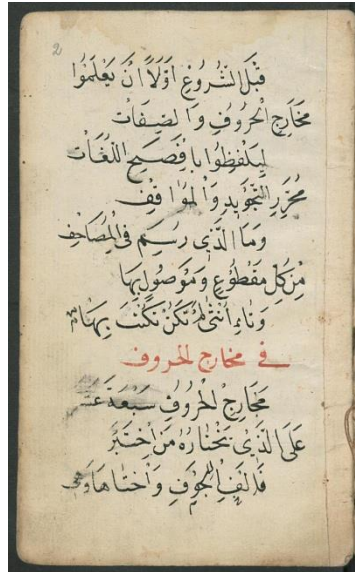 2
قَبْلَ الشُّرُوعِ اَوَّلًا اَنْ يَعْلَمُوا
مَخَارِجَ الْحُرُوفِ وَالصِّفَاتِ
لِيَلْفِظُوا بِاَفْصَحِ اللُّغَاتِ
مُحَرِّرِ التَّجْوِيدِ وَالْمَوَاقِفِ
وَمَا الَّذِي رُسِمَ فِي الْمَصَاحِفِ
مِنْ كُلِّ مَقْطُوعٍ وَمَوْصُولٍ بِهَا
وَتَاءِ اُنْثٰى لَمْ تَكُنْ تُكْتَبْ بِهَا
في مخارج الحروف
مَخَارِجُ الْحُرُوفِ سَبْعَةَ عَشَرْ
عَلَى الَّذِي يَخْتَارُهُ مَنِ اخْتَبَرْ
فَاَلِفُ الْجَوْفِ وَاُخْتَاهَا وَهِيَ